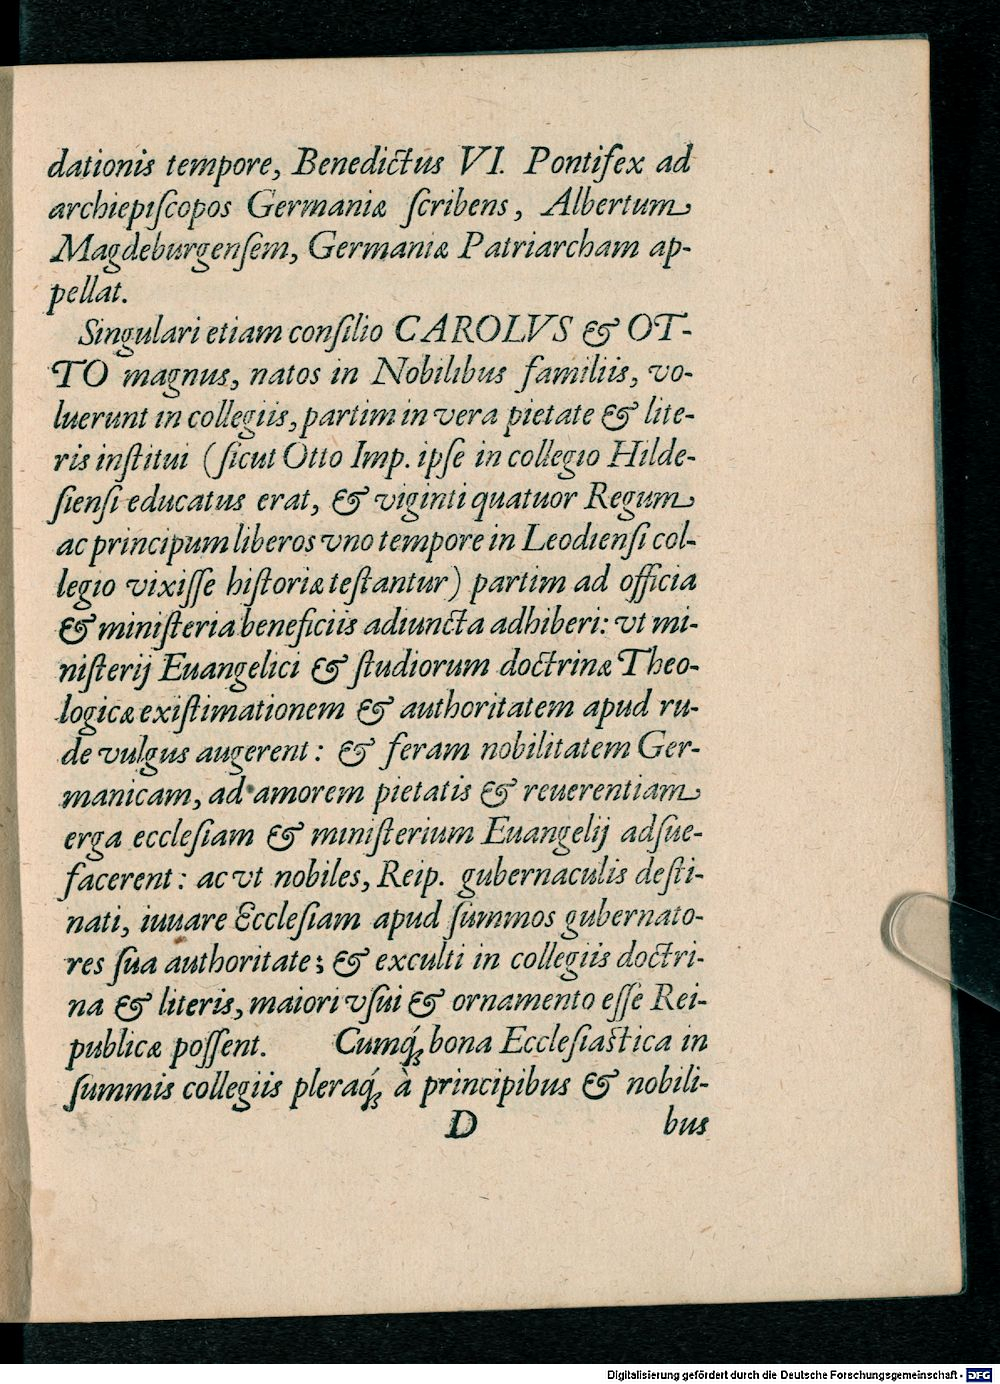 dationis tempore, Benedictus VI. Pontifex ad
archiepiſcopos Germaniæ ſcribens, Albertum
Magdeburgenſem, Germaniæ Patriarcham ap-
pellat.
Singulari etiam conſilio CAROLVS & OT-
TO magnus, natos in Nobilibus familiis, vo-
luerunt in collegiis, partim in vera pietate & lite-
ris inſtitui (ſicut Otto Imp. ipſe in collegio Hilde-
ſienſi educatus erat, & viginti quatuor Regum
ac principum liberos vno tempore in Leodienſi col-
legio vixiſſe hiſtoriæ teſtantur) partim ad officia
& miniſteria beneficiis adiuncta adhiberi: vt mi-
niſterij Euangelici & ſtudiorum doctrinæ Theo-
logicæ exiſtimationem & authoritatem apud ru-
de vulgus augerent: & feram nobilitatem Ger-
manicam, ad amorem pietatis & reuerentiam
erga eccleſiam & miniſterium Euangelij adſue-
facerent: ac vt nobiles, Reip. gubernaculis deſti-
nati, iuuare Eccleſiam apud ſummos gubernato-
res ſua authoritate; & exculti in collegiis doctri-
na & literis, maiori vſui & ornamento eſſe Rei-
publicæ poſſent. Cumq́ꝫ bona Eccleſiastica in
ſummis collegiis pleraq́ꝫ à principibus & nobili-
D bus
Digitalisierung gefördert durch die Deutsche Forschungsgemeinschaft - DFG